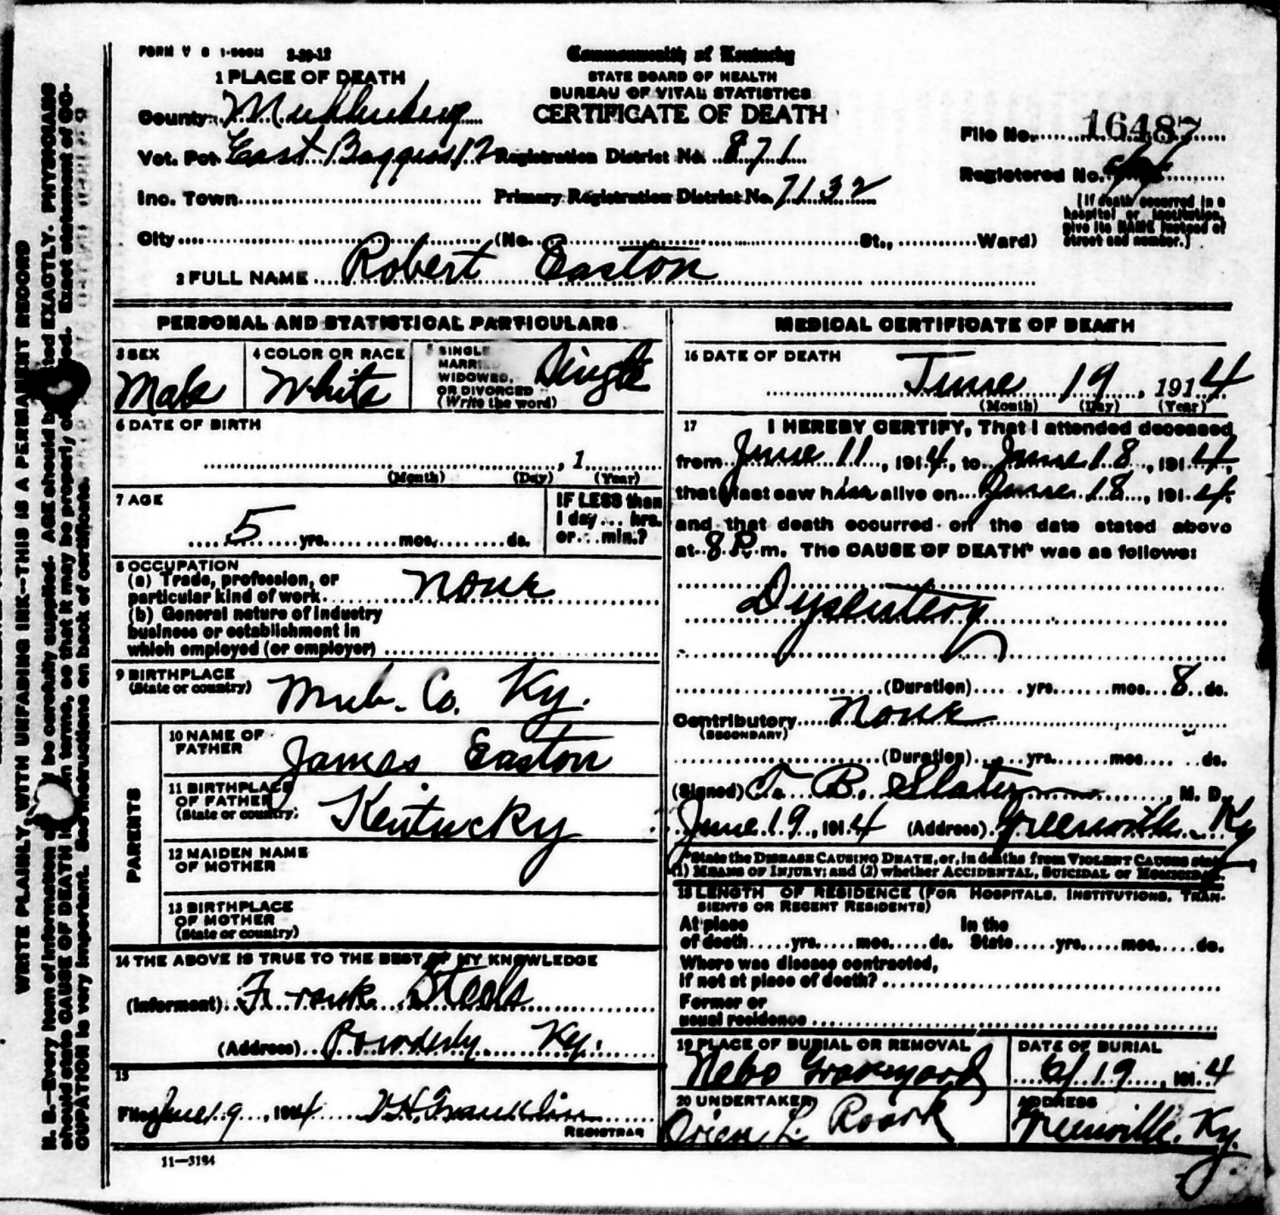 FORM V S 1-500M 3-20-12
Commonwealth of Kentucky
STATE BOARD OF HEALTH
BUREAU OF VITAL STATISTICS
CERTIFICATE OF DEATH
1 PLACE OF DEATH
County Muhlenberg
Vot. Pct East Boggess 12 Registration District No. 871
Inc. Town Primary Registration District No. 7132
City (No. St., Ward)
File No. 16487
Registered No.
[If death occurred in a
hospital or institution,
give its NAME instead of
street and number.]
2 FULL NAME Robert Easton
PERSONAL AND STATISTICAL PARTICULARS
3 SEX
Male
4 COLOR OR RACE
White
5 SINGLE
MARRIED
WIDOWED,
OR DIVORCED
(Write the word)
Single
6 DATE OF BIRTH
, 1
(Month) (Day) (Year)
7 AGE
5 yrs. mos. ds.
IF LESS than
1 day... hrs.
or... min.?
8 OCCUPATION
(a) Trade, profession, or
particular kind of work none
(b) General nature of industry
business or establishment in
which employed (or employer)
9 BIRTHPLACE
(State or country)
Muh. Co. Ky.
PARENTS
10 NAME OF
FATHER
James Easton
11 BIRTHPLACE
OF FATHER
(State or country)
Kentucky
12 MAIDEN NAME
OF MOTHER
13 BIRTHPLACE
OF MOTHER
(State or country)
14 THE ABOVE IS TRUE TO THE BEST OF MY KNOWLEDGE
(Informant) Frank Steele
(Address) Powderly Ky.
15
Filed June 19, 1914 Franklin
REGISTRAR
11—3194
MEDICAL CERTIFICATE OF DEATH
16 DATE OF DEATH
June 19, 1914
(Month) (Day) (Year)
17 I HEREBY CERTIFY, That I attended deceased
from June 11, 1914, to June 18, 1914,
that I last saw him alive on June 18, 1914.
and that death occurred on the date stated above
at 8 P.m. The CAUSE OF DEATH* was as follows:
Dysentery
(Duration) yrs. mos. 8 ds.
Contributory none
(SECONDARY)
(Duration) yrs. mos. ds.
(Signed) T. B. Slaton M. D.
June 19, 1914 (Address) Greenville Ky
*State the DISEASE CAUSING DEATH, or, in deaths from VIOLENT CAUSES state
(1) MEANS OF INJURY; and (2) whether ACCIDENTAL, SUICIDAL or HOMICIDAL.
18 LENGTH OF RESIDENCE (FOR HOSPITALS, INSTITUTIONS, TRAN-
SIENTS OR RECENT RESIDENTS)
At place In the
of death yrs. mos. ds. State yrs. mos. ds.
Where was disease contracted,
if not at place of death?
Former or
usual residence
19 PLACE OF BURIAL OR REMOVAL
Nebo Graveyard
DATE OF BURIAL
6/19, 1914
20 UNDERTAKER
Orien L. Roark
ADDRESS
Greenville, Ky.
WRITE PLAINLY, WITH UNFADING INK—THIS IS A PERMANENT RECORD
N. B.—Every item of information be carefully supplied. AGE should be stated EXACTLY. PHYSICIANS
should state CAUSE OF DEATH in terms, so that it may be properly Exact statement of OC-
CUPATION is very important. See instructions on back of certificate.